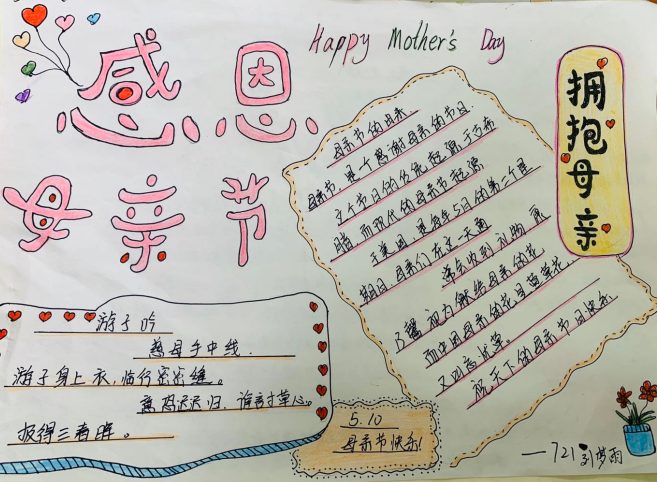 感恩
母亲节
Happy Mother's Day
拥抱母亲
母亲节的由来
母亲节,是一个感谢母亲的节日.
这个节日的传统起源于古希
腊,而现代的母亲节起源
于美国,是每年5月的第二个星
期日.母亲们在这一天通
常会收到礼物.康
乃馨被视为献给母亲的花,
而中国母亲的花是萱草花,
又叫忘忧草。
祝天下的母亲节日快乐
游子吟
慈母手中线.
游子身上衣,临行密密缝。
意恐迟迟归.谁言寸草心。
报得三春晖。
5.10
母亲节快乐!
—721 刘梦雨